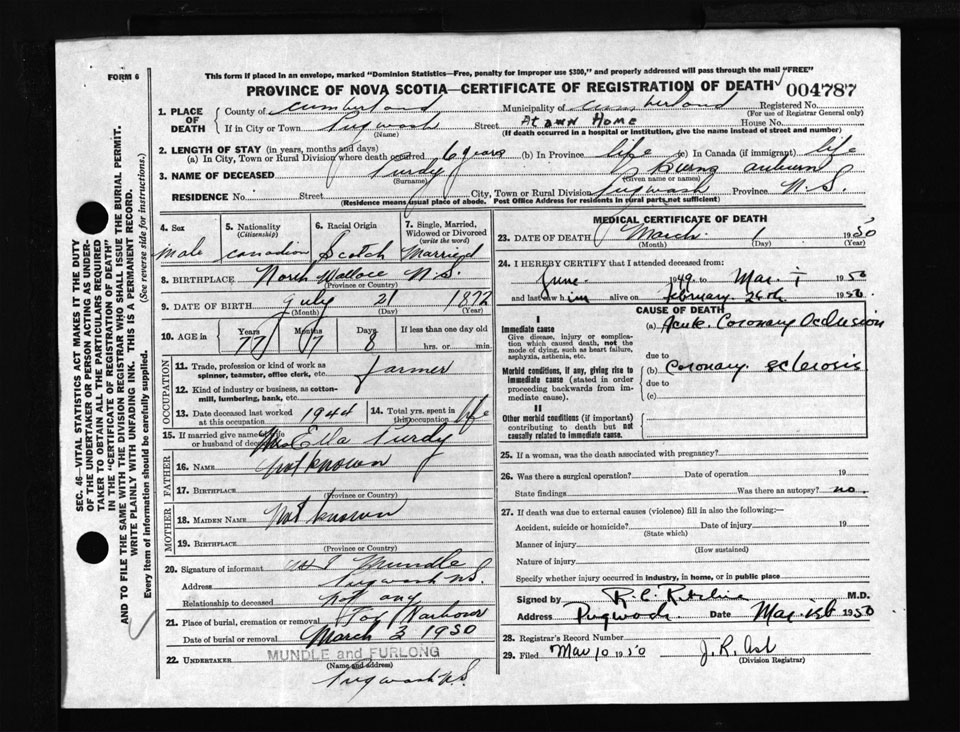 FORM 6
This form if placed in an envelope, marked "Dominion Statistics—Free, penalty for improper use $300," and properly addressed will pass through the mail "FREE"
PROVINCE OF NOVA SCOTIA—CERTIFICATE OF REGISTRATION OF DEATH
004787
1. PLACE OF DEATH
County of Cumberland Municipality of Cumberland Registered No.
(For use of Registrar General only)
If in City or Town Pugwash Street At own Home House No.
(Name) (If death occurred in a hospital or institution, give the name instead of street and number)
2. LENGTH OF STAY (in years, months and days)
(a) In City, Town or Rural Division where death occurred 6 years (b) In Province life (c) In Canada (if immigrant) life
3. NAME OF DECEASED Purdy auburn
(Surname) (Given name or names)
RESIDENCE No. Street City, Town or Rural Division Pugwash Province N.S.
(Residence means usual place of abode. Post Office Address for residents in rural parts not sufficient)
4. Sex male
5. Nationality (Citizenship) Canadian
6. Racial Origin Scotch
7. Single, Married, Widowed or Divorced (write the word) Married
8. BIRTHPLACE North Wallace N.S.
(Province or County)
9. DATE OF BIRTH July 21 1872
(Month) (Day) (Year)
10. AGE in Years 77 Months 7 Days 8 If less than one day old hrs. or min.
OCCUPATION
11. Trade, profession or kind of work as spinner, teamster, office clerk, etc. farmer
12. Kind of industry or business, as cotton-mill, lumbering, bank, etc.
13. Date deceased last worked at this occupation 1944
14. Total yrs. spent in this occupation life
15. If married give name of wife or husband of deceased Mrs Ella Purdy
FATHER
16. NAME not known
17. BIRTHPLACE
(Province or County)
MOTHER
18. MAIDEN NAME Not known
19. BIRTHPLACE
(Province or County)
20. Signature of informant Mundle
Address Pugwash N.S.
Relationship to deceased not any
21. Place of burial, cremation or removal Fox Harbour
Date of burial or removal March 3 1950
22. UNDERTAKER MUNDLE and FURLONG
(Name and address)
Pugwash N.S.
MEDICAL CERTIFICATE OF DEATH
23. DATE OF DEATH March 1 1950
(Month) (Day) (Year)
24. I HEREBY CERTIFY that I attended deceased from:
June 1949 to Mar 1 1950
and last saw him alive on February 26th 1950
CAUSE OF DEATH
I
Immediate cause
Give disease, injury or complication which caused death, not the mode of dying, such as heart failure, asphyxia, asthenia, etc.
(a) Acute Coronary Occlusion
due to
Morbid conditions, if any, giving rise to immediate cause (stated in order proceeding backwards from immediate cause).
(b) Coronary sclerosis
due to
(c)
II
Other morbid conditions (if important) contributing to death but not causally related to immediate cause.
25. If a woman, was the death associated with pregnancy?
26. Was there a surgical operation? Date of operation 19
State findings Was there an autopsy? no.
27. If death was due to external causes (violence) fill in also the following:—
Accident, suicide or homicide? Date of injury 19
(State which)
Manner of injury
(How sustained)
Nature of injury
Specify whether injury occurred in industry, in home, or in public place
Signed by M.D.
Address Pugwash Date Mar 1st 1950
28. Registrar's Record Number
29. Filed Mar 10 1950 J. R. Ash
(Division Registrar)
SEC. 46—VITAL STATISTICS ACT MAKES IT THE DUTY
OF THE UNDERTAKER OR PERSON ACTING AS UNDER-
TAKER TO OBTAIN ALL THE PARTICULARS REQUIRED
IN THE "CERTIFICATE OF REGISTRATION OF DEATH"
AND TO FILE THE SAME WITH THE DIVISION REGISTRAR WHO SHALL ISSUE THE BURIAL PERMIT.
WRITE PLAINLY WITH UNFADING INK. THIS IS A PERMANENT RECORD.
Every item of information should be carefully supplied. (See reverse side for instructions.)